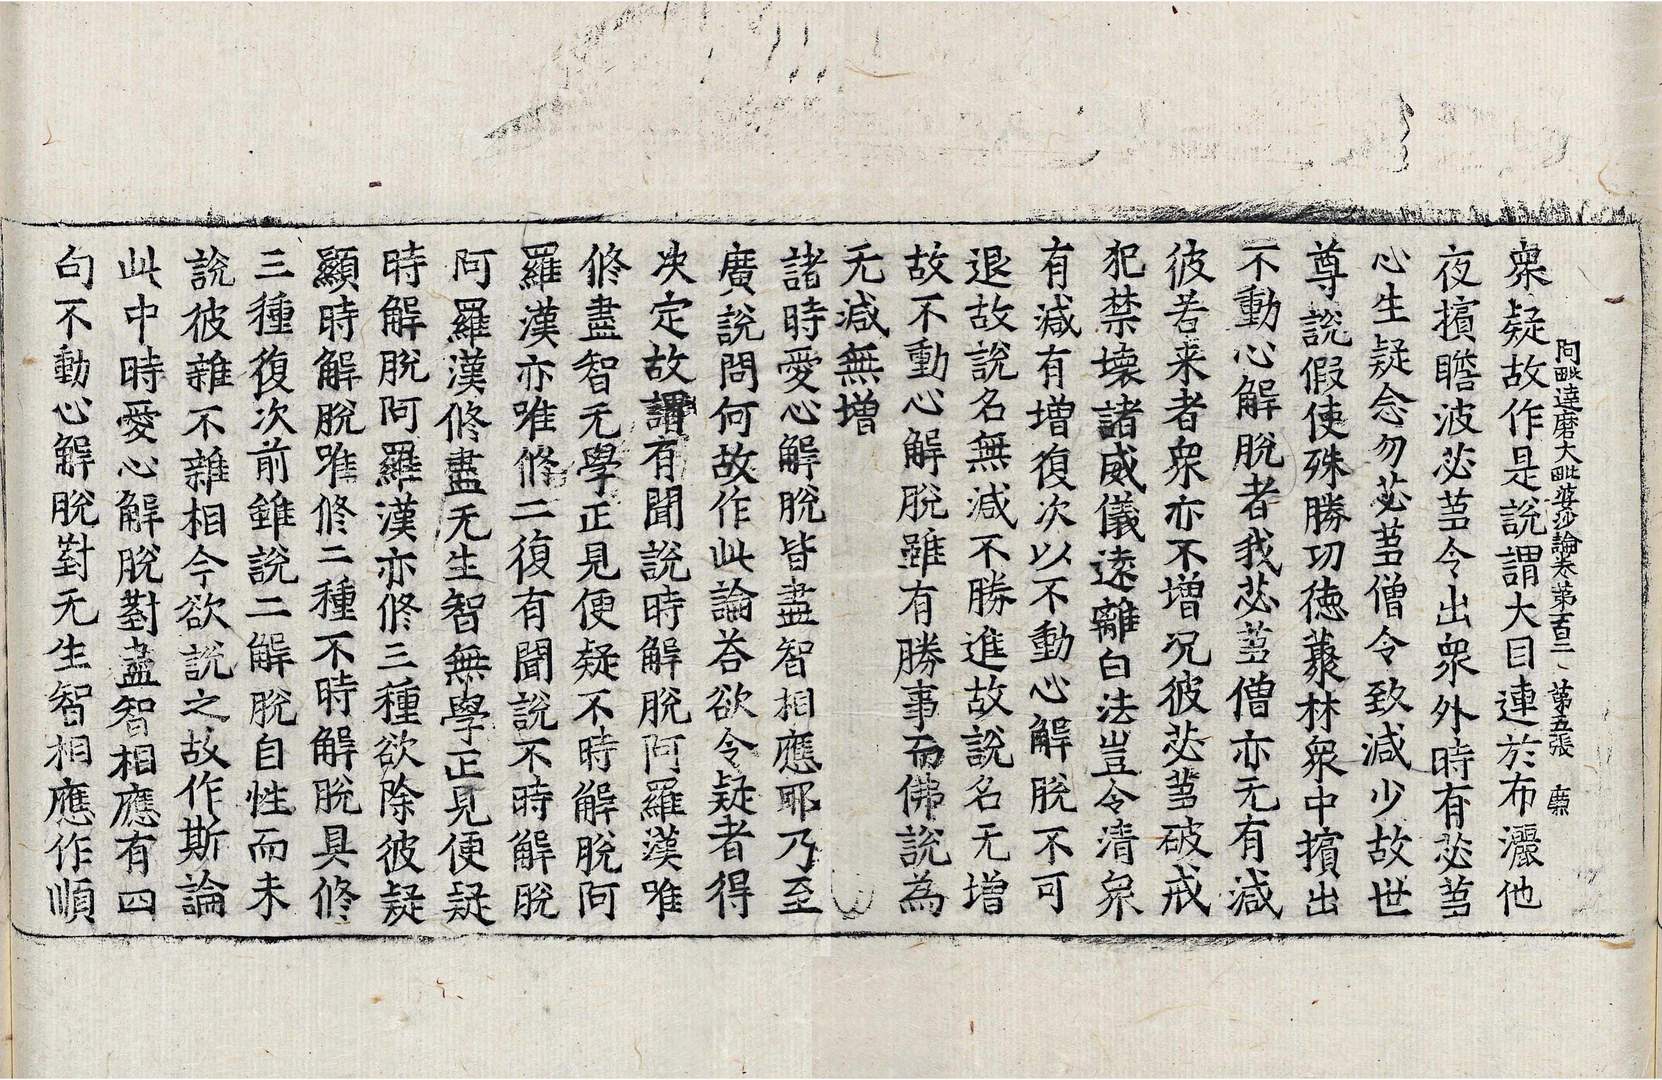 阿毗達磨大毗婆沙論卷第一百二　第五張　廉
衆疑故作是說謂大目連於布灑他
夜擯瞻波苾芻令出衆外時有苾芻
心生疑念勿苾芻僧令致減少故世
尊說假使殊勝功徳藂林衆中擯出
不動心解脫者我苾芻僧亦无有減
彼若来者衆亦不增况彼苾芻破戒
犯禁壞諸威儀逺離白法豈令清衆
有減有增復次以不動心解脫不可
退故說名無減不勝進故說名无增
故不動心解脫雖有勝事而佛說為
无減無增
諸時愛心解脫皆盡智相應耶乃至
廣說問何故作此論荅欲令疑者得
决定故謂有聞說時解脫阿羅漢唯
修盡智无學正見便疑不時解脫阿
羅漢亦唯修二復有聞說不時解脫
阿羅漢修盡无生智無學正見便疑
時解脫阿羅漢亦修三種欲除彼疑
顯時解脫唯修二種不時解脫具修
三種復次前雖說二解脫自性而未
說彼雜不雜相今欲說之故作斯論
此中時愛心解脫對盡智相應有四
句不動心解脫對无生智相應作順